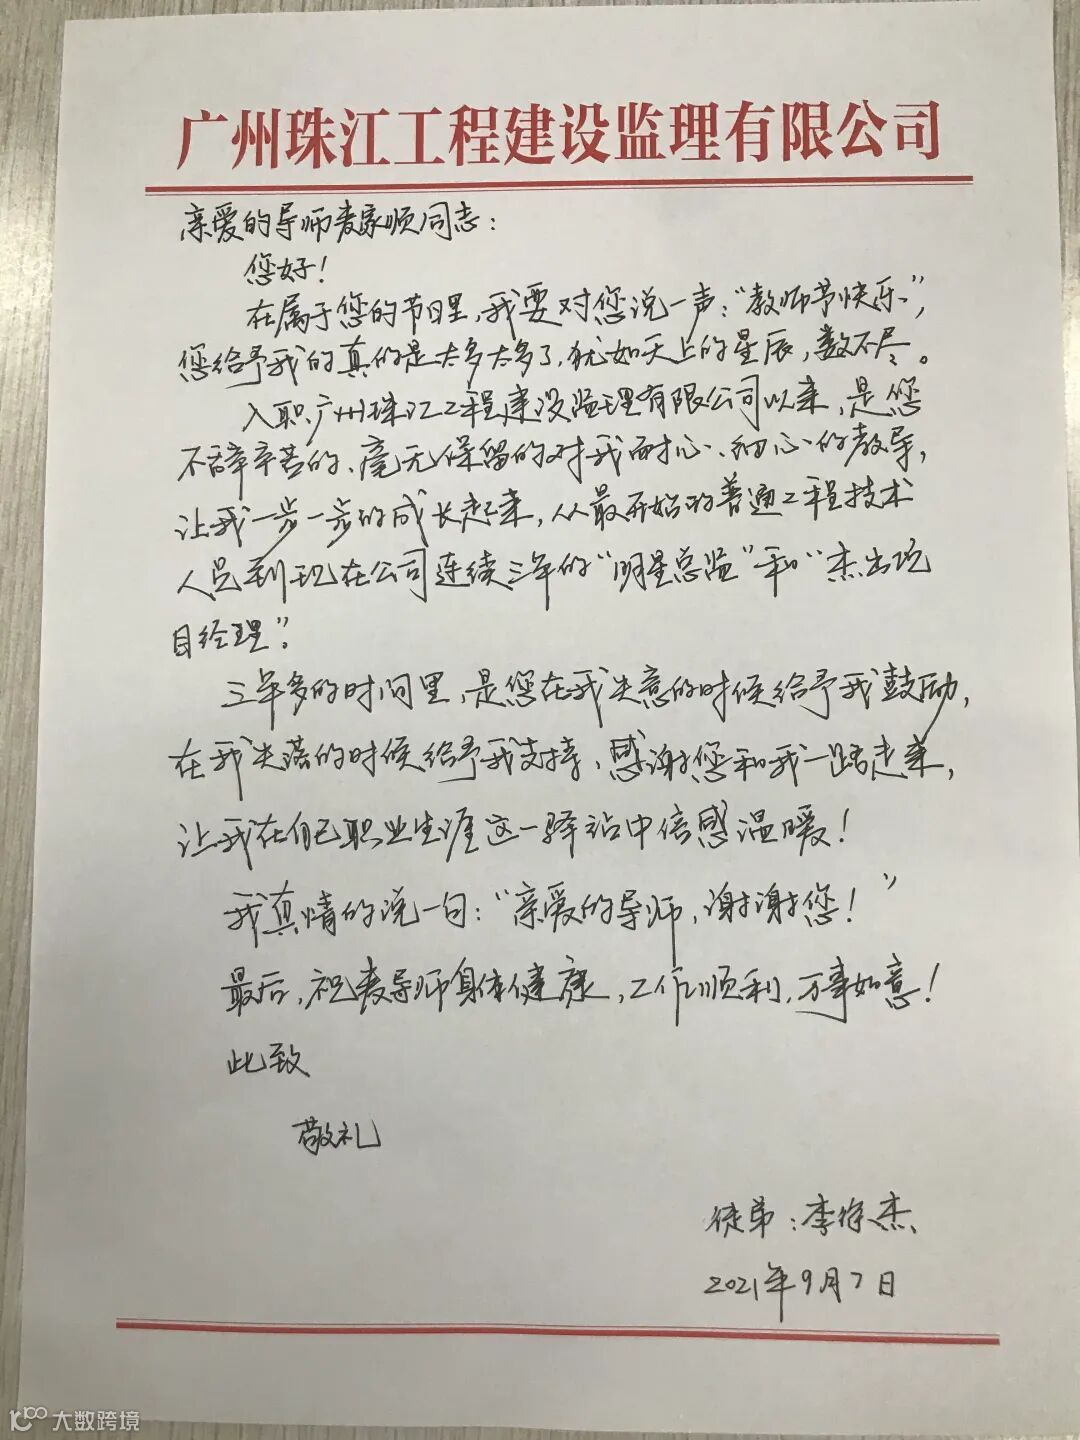 广州珠江工程建设监理有限公司
亲爱的导师麦家顺同志：
您好！
在属于您的节日里，我要对您说一声：“教师节快乐”，
您给予我的真的是太多太多了，犹如天上的星辰，数不尽。
入职广州珠江工程建设监理有限公司以来，是您
不辞辛苦的、毫无保留的对我耐心、细心的教导，
让我一步一步的成长起来，从最开始的普通工程技术
人员到现在公司连续三年的“明星总监”和“杰出项
目经理”。
三年多的时间里，是您在我失意的时候给予我鼓励，
在我失落的时候给予我支持，感谢您和我一路走来，
让我在自己职业生涯这一驿站中倍感温暖！
我真情的说一句：“亲爱的导师，谢谢您！”
最后，祝麦导师身体健康，工作顺利，万事如意！
此致
敬礼
徒弟：李徐杰
2021年9月7日
大数跨境